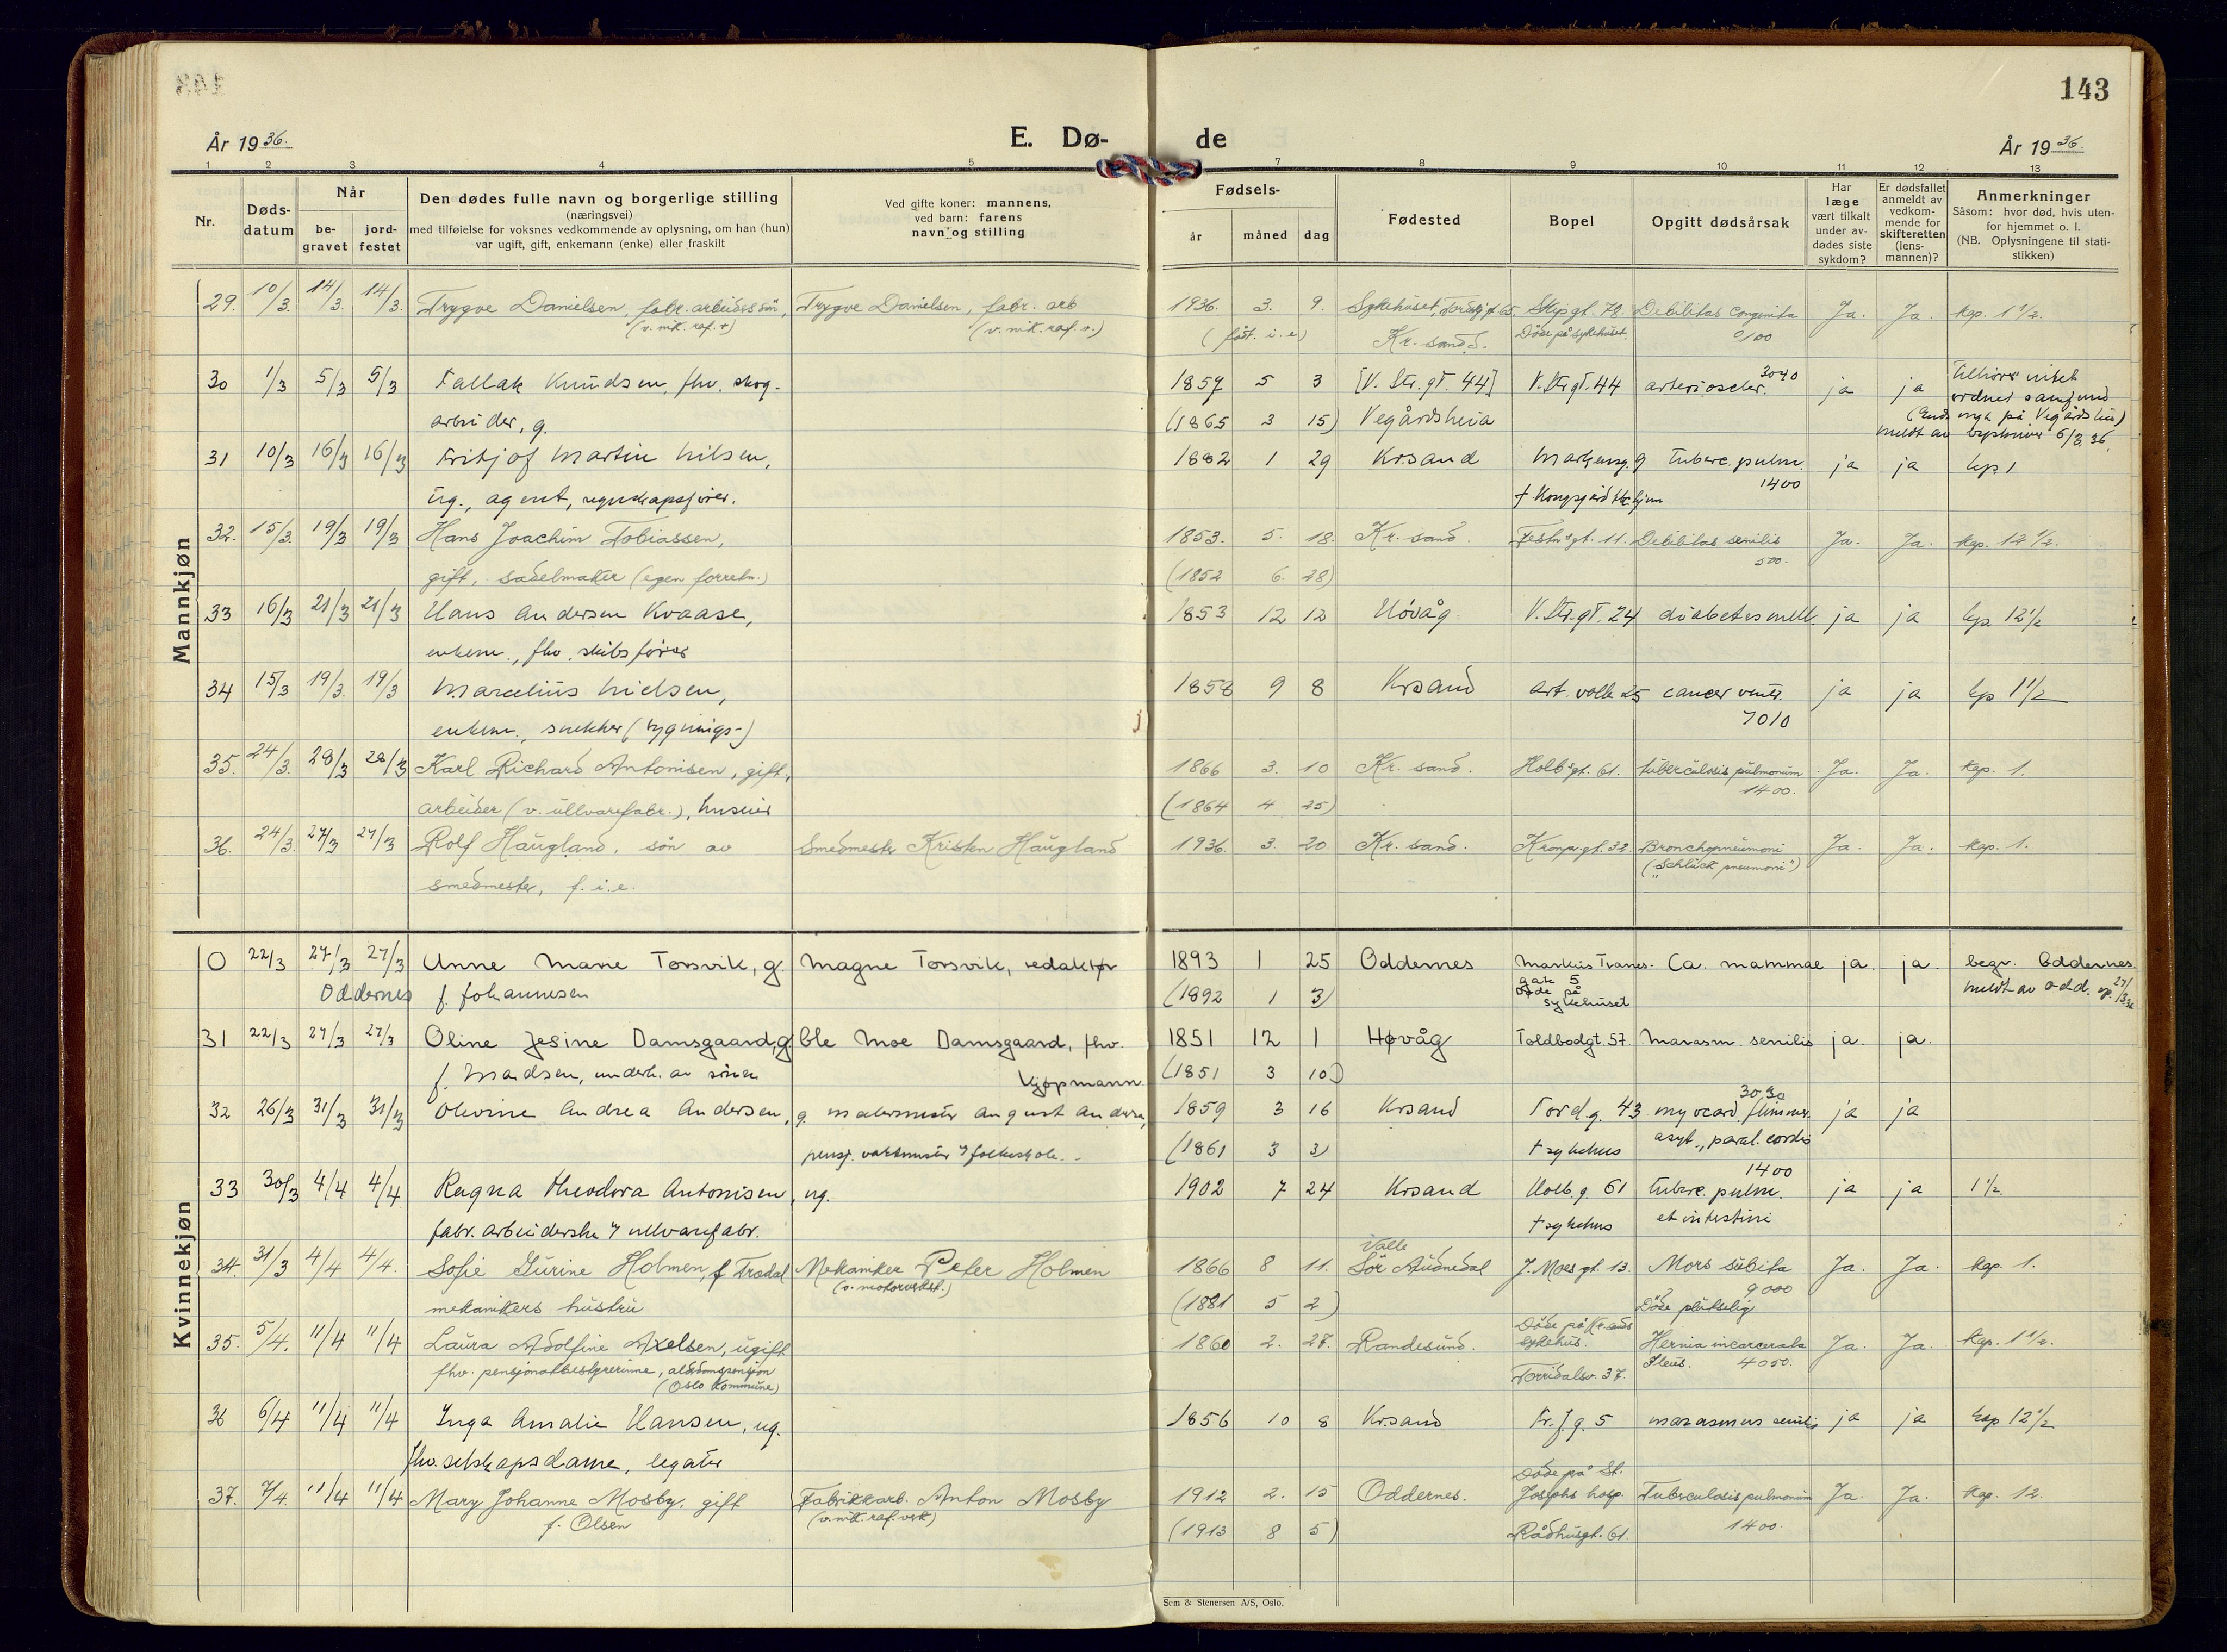 143
År 1936.
E. Dø- de
År 1936.
1 2 3 4 5 7 8 9 10 11 12 13
Nr.
Døds-
datum
Når
be-
gravet
jord-
festet
Den dødes fulle navn og borgerlige stilling
(næringsvei)
med tilføielse for voksnes vedkommende av oplysning, om han (hun)
var ugift, gift, enkemann (enke) eller fraskilt
Ved gifte koner: mannens,
ved barn: farens
navn og stilling
Fødsels-
år måned dag
Fødested
Bopel
Opgitt dødsårsak
Har
læge
vært tilkalt
under av-
dødes siste
sykdom?
Er dødsfallet
anmeldt av
vedkom-
mende for
skifteretten
(lens-
mannen)?
Anmerkninger
Såsom: hvor død, hvis uten-
for hjemmet o. l.
(NB. Oplysningene til stati-
stikken)
Mannkjøn
29. 10/3. 14/3. 14/3. Trygve Danielsen, fabr. arbeiders sön, Trygve Danielsen, fabr. arb 1936. 3. 9. Sykehuset, Skipgt. 78. Debilitas congenita Ja. Ja. kap. 1 1/2.
(v. nik. raf. v) (v. nik. raf. v.) (föt. i. e) Kr. sand S. Döde på sykehuset. 0100
30 1/3 5/3 5/3 Tallak Knudsen, fhv. skog- 1857 5 3 [V. Str. gt. 44] V. Str gt. 44 arterioscler. 3040 ja ja Tilhörer intet
arbeider, g. (1865 3 15) Vegårdsheia ordnet samfund
på Vegårdshei)
meldt av byskriver 6/3. 36.
31 10/3 16/3 16/3 Fritjof Martin Nilsen, 1882 1 29 Krsand Markensg. 9 Tuberc. pulm. ja ja kp 1
ug., agent, regnskapsfører. † Kongsgård 1400
32. 15/3. 19/3 19/3 Hans Joachim Tobiassen, 1853. 5. 18. Kr. sand. Festn'gt. 11. Debilitas senilis Ja. Ja. kap. 12 1/2.
gift, sadelmaker (egen forretn.) (1852 6. 28) 500.
33 16/3 21/3 21/3 Hans Andersen Kvaase, 1853 12 12 Høvåg V. Str. gt. 24 diabetes mell. ja ja kp. 12 1/2
enkem., fhv. skibsfører
34 15/3 19/3. 19/3 Marcelius Nielsen, 1858 9 8 Krsand Art. volle 25 cancer ventr. ja ja kp 1 1/2
enkem., snekker (bygnings-) 7010
35. 24/3. 28/3 28/3 Karl Richard Antonisen, gift, 1866 3. 10 Kr. sand. Holb'gt. 61. tuberculosis pulmonum Ja. Ja. kap. 1.
arbeider (v. ullvarefabr.), huseier (1864 4 25) 1400.
36. 24/3. 27/3 27/3 Rolf Haugland, sön av Smedmester Kristen Haugland 1936. 3. 20 Kr. sand. Kronp.gt. 32. Bronchopneumoni Ja. Ja. kap. 1.
smedmester, f. i. e. („Schluck pneumoni")
Kvinnekjøn
0 22/3 27/3 27/3 Unne Marie Torsvik, g. Magne Torsvik, redaktør 1893 1 25 Oddernes Markus Tranes- Ca. mammae ja. ja. begr. Oddernes.
Oddernes f. Johannesen (1892 1 3) gate 5 meldt av Odd. sp. 27/3 36
Døde på
sykehuset
31 22/3 27/3 27/3 Oline Jesine Damsgaard, g Ole Moe Damsgaard, fhv. 1851 12 1 Høvåg Toldbodgt. 57 Marasm. senilis ja. ja.
f. Madsen, underh. av sönn kjøpmann. (1851 3 10)
32 26/3 31/3 31/3 Olevine Andrea Andersen, g. malermester August Andersen, 1859 3 16 Krsand Tord.g. 43 myocard. flimmer. 3030 ja ja
pensj. vaktmester v folkeskole. (1861 3 3) † sykehus asyt., paral. cordis
33 30/3 4/4 4/4 Ragna Theodora Antonisen, ug. 1902 7 24 Krsand Holb. g. 61 tuberc. pulm. 1400 ja ja 1 1/2.
fabr. arbeiderske v ullvarefabr. † sykehus et intestini
34. 31/3 4/4 4/4. Sofie Gurine Holmen, f Trædal Mekaniker Peter Holmen 1866 8 11. Valle Sör Audnedal J. Moes gt. 13. Mors subita Ja. Ja. kap. 1.
mekanikers hustru (v. motorverkst.) (1881 5 2) 9000
Döde plutselig
35. 5/4. 11/4 11/4 Laura Adolfine Axelsen, ugift 1860 2. 27. Randesund. Döde på Kr.sands sykehus. Hernia incarcerata Ja. Ja. kap. 1 1/2.
fhv. pensjonatbestyrerinne, alderdomspensjon Torridalsv. 37. Ileus. 4050.
(Oslo Kommune)
36 6/4 11/4 11/4 Inga Amalie Hansen, ug. 1856 10 8 Krsand Fr. J. g. 5 marasmus senilis ja ja kap 12 1/2
fhv. selskapsdame, legater
37. 7/4. 11/4 11/4 Mary Johanne Mosby, gift Fabrikkarb. Anton Mosby 1912 2. 15 Oddernes. Döde på St. Josephs hosp. Tuberculosis pulmonum Ja. Ja. kap. 12.
f. Olsen (v. nik. raf. verk) (1913 8 5) Rådhusgt. 61. 1400.
Sem & Stenersen A/S, Oslo.